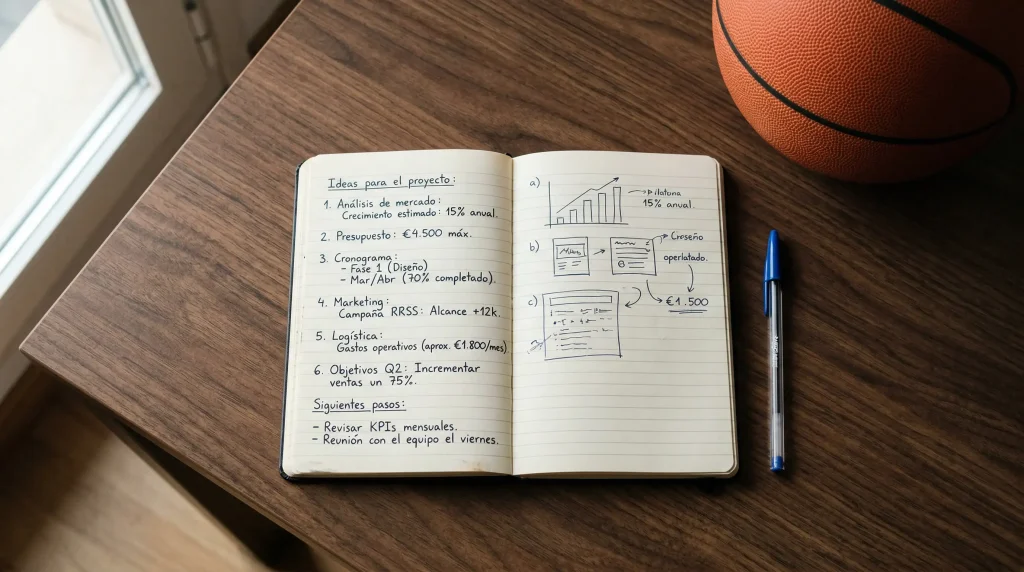 Ideas para el proyecto:
1. Análisis de mercado:
Crecimiento estimado: 15% anual.
2. Presupuesto: €4.500 máx.
3. Cronograma:
– Fase 1 (Diseño)
– Mar/Abr (70% completado).
4. Marketing:
Campaña RRSS: Alcance +12k.
5. Logística:
Gastos operativos (aprox. €1.800/mes)
6. Objetivos Q2: Incrementar
ventas un 75%.
Siguientes pasos:
– Revisar KPIs mensuales.
– Reunión con el equipo el viernes.
a)
15% anual.
b)
operlatado.
c)
€1.500